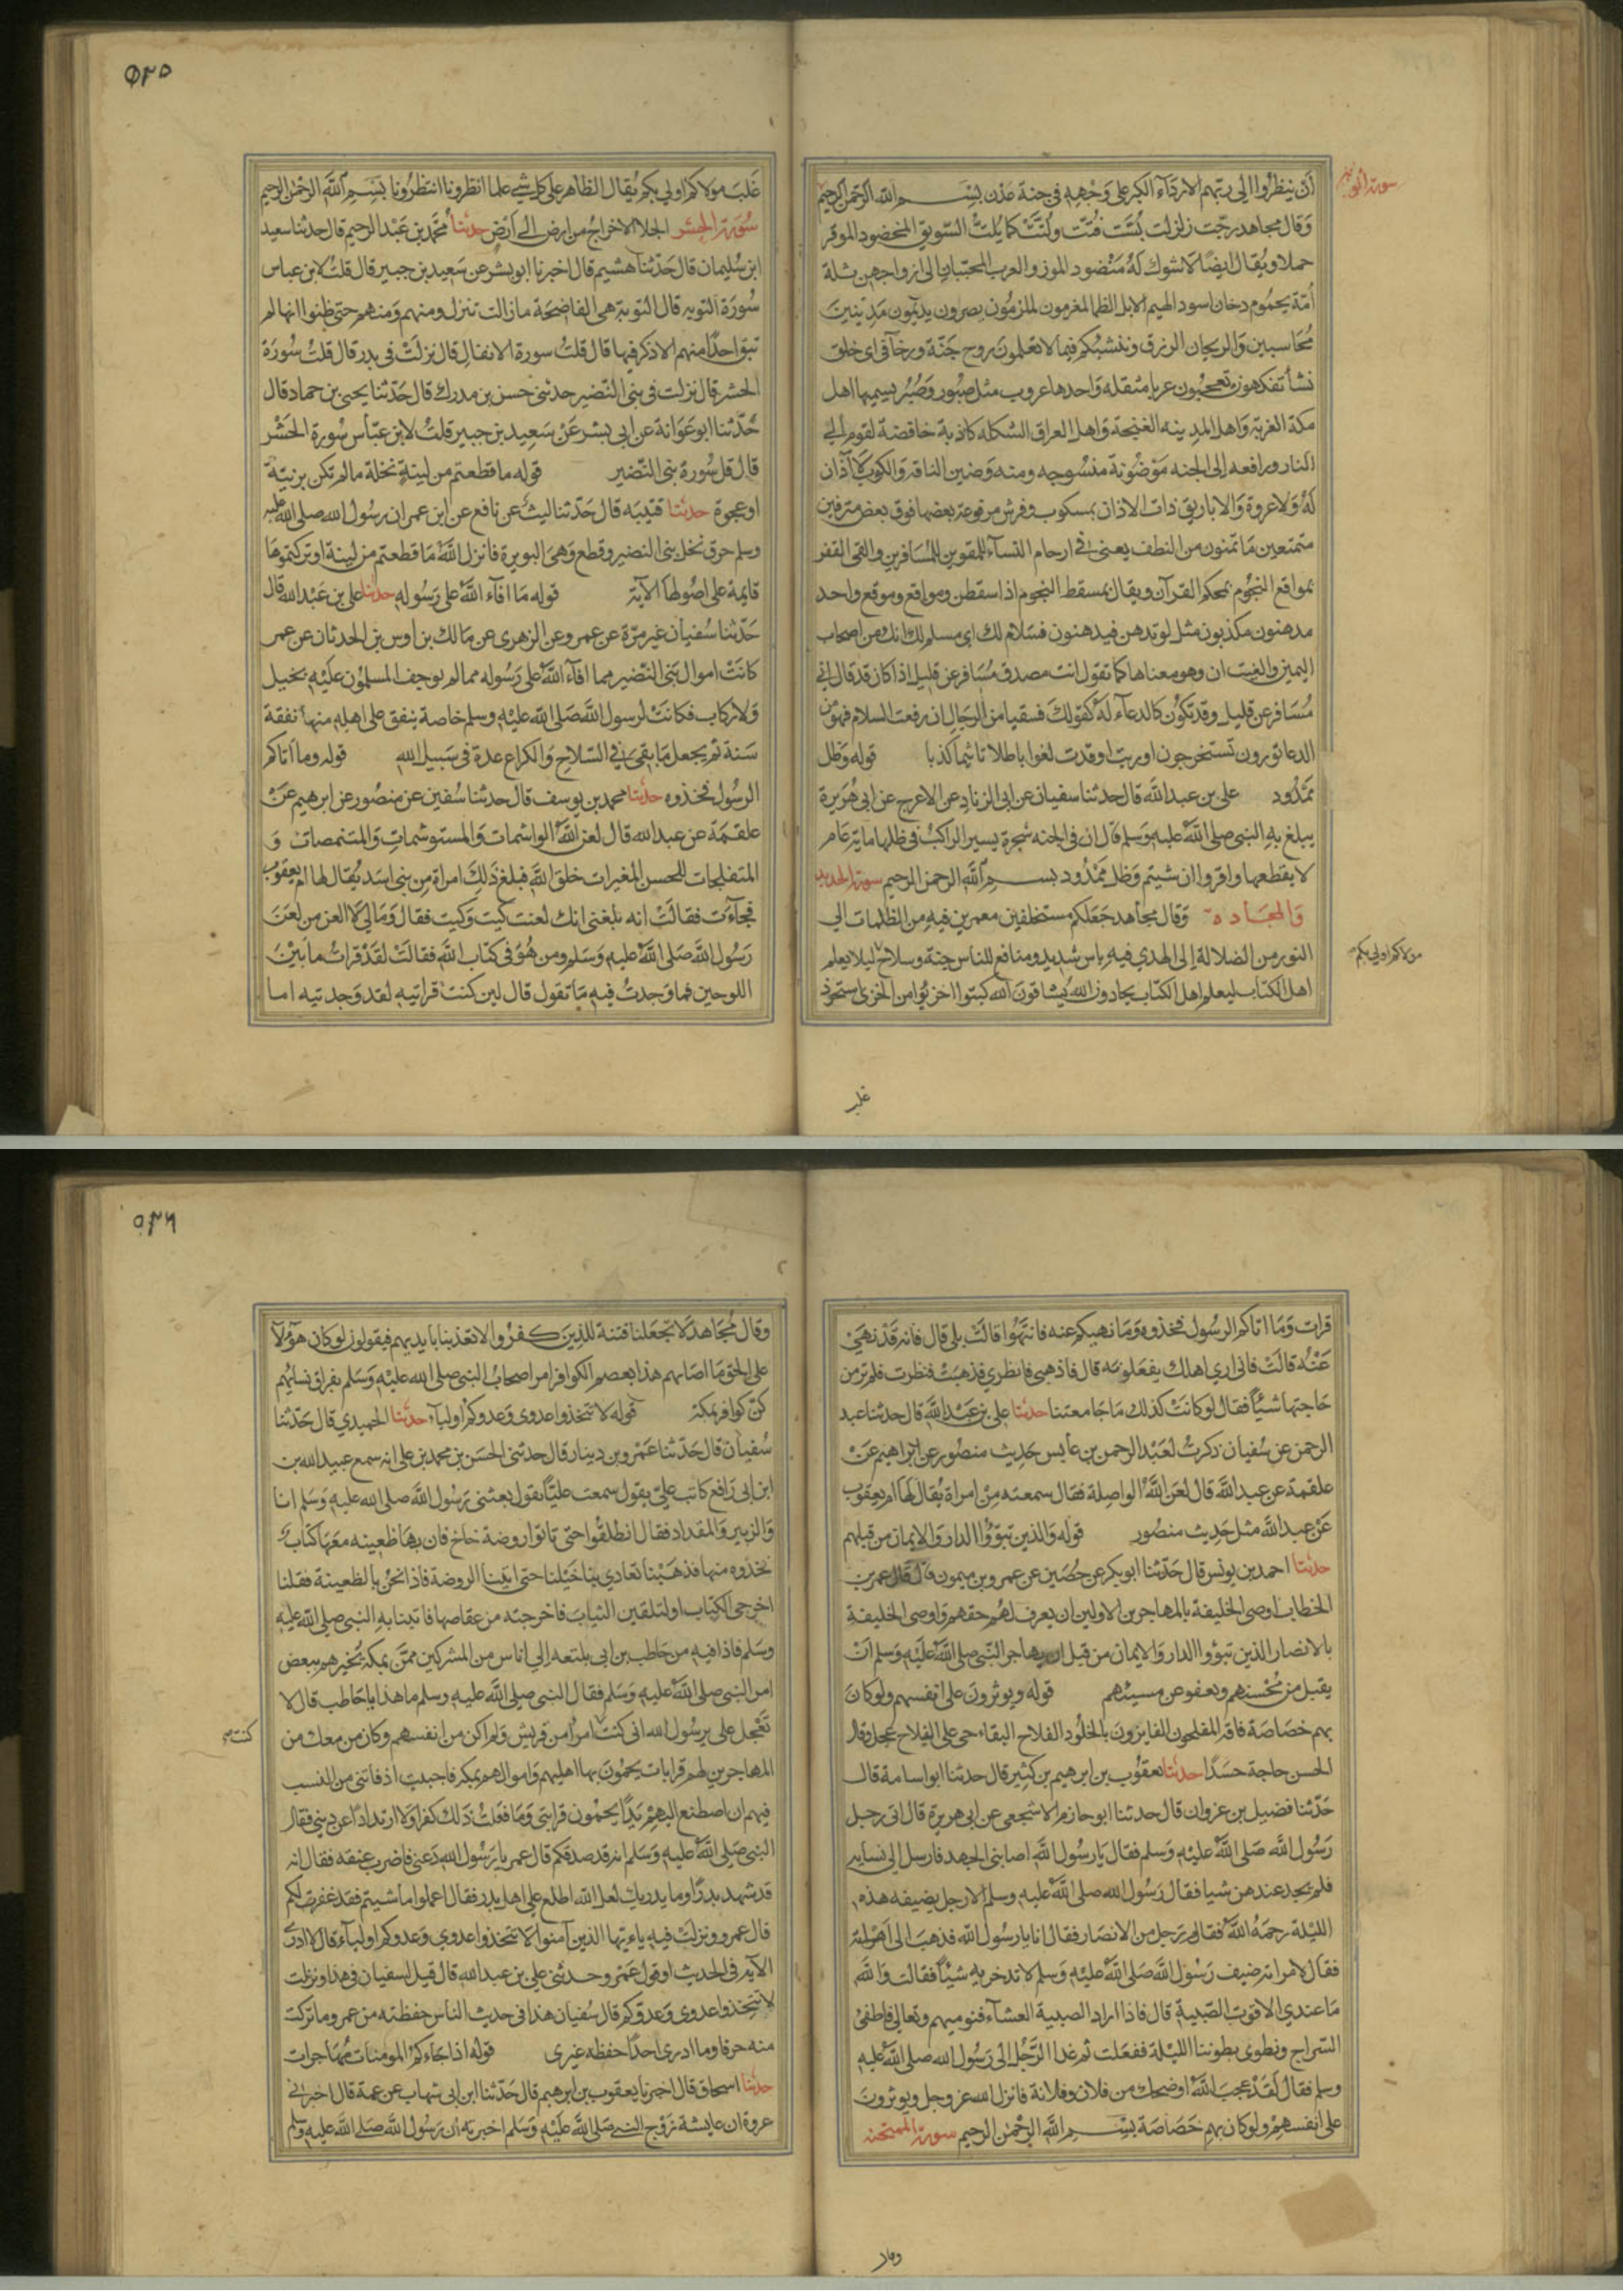 سورة الواقعة
أن ينظروا إلى ربهم الا رداء الكبر على وجهه في جنة عدن بسم الله الرحمن الرحيم
وقال مجاهد رجت زلزلت بست فتت ولتت كما يلت السويق المخضود الموقر
حملا ويقال ايضا لا شوك له منضود الموز والعرب المحببات الى ازواجهن ثلة
أمة يحموم دخان اسود الهيم الابل الظما لمغرمون لملزمون يصرون يديمون مدينين
محاسبين والريحان الرزق وننشئكم فيما لا تعلمون روح جنة ورخآ في اى خلق
نشأ تفكهون تعجبون عربا مثقله واحدها عروب مثل صبور وصبر يسميها اهل
مكة العربة واهل المدينه الغنجة واهل العراق الشكله كاذبة خافضة لقوم الى
النار ورافعه إلى الجنه موضونة منسوجه ومنه وضين الناقة والكوب لا آذان
له ولا عروة والاباريق ذات الاذان مسكوب وفرش مرفوعة بعضها فوق بعض مترفين
متمتعين ما تمنون من النطف يعنى في ارحام النسآء للمقوين للمسافرين والقى القفر
بمواقع النجوم بمحكم القرآن ويقال بمسقط النجوم اذا سقطن ومواقع وموقع واحد
مدهنون مكذبون مثل لو تدهن فيدهنون فسلام لك اى مسلم لك انك من اصحاب
اليمين والغيت ان وهو معناها كما تقول انت مصدق مسافر عن قليل اذا كان قد قال اني
مسافر عن قليل وقد تكون كالدعآء له كقولك فسقيا من الرجال ان رفعت السلام فهو من
الدعا تورون تستخرجون اوريت اوقدت لغوا باطلا تاثيما كذبا قوله وظل
ممدود على بن عبد الله قال حدثنا سفيان عن ابى الزناد عن الاعرج عن ابى هريرة
يبلغ به النبى صلى الله عليه وسلم قال ان في الجنه شجرة يسير الراكب في ظلها ماية عام
لا يقطعها واقروا ان شيتم وظل ممدود بسم الله الرحمن الرحيم سورة الحديد
والمجادة وقال مجاهد جعلكم مستخلفين معمرين فيه من الظلمات الى
النور من الضلالة إلى الهدي فيه باس شديد ومنافع للناس جنة وسلاح ليلا يعلم
مولاكم اولى بكم
اهل الكتاب ليعلم اهل الكتاب يحادون الله يشاقون الله كبتوا اخزيوا من الخزى استحوذ
غلب
٥٢٥
غلب مولاكم اولى بكم يقال الظاهر على كل شي علما انظرونا انتظرونا بسم الله الرحمن الرحيم
سورة الحشر الجلا الاخراج من ارض الى ارض حدثنا محمد بن عبد الرحيم قال حدثنا سعيد
ابن سليمان قال حدثنا هشيم قال اخبرنا ابو بشر عن سعيد بن جبير قال قلت لابن عباس
سورة التوبه قال التوبة هى الفاضحة ما زالت تنزل ومنهم ومنهم حتى ظنوا انها لم
تبق احدا منهم الا ذكر فيها قال قلت سورة الانفال قال نزلت في بدر قال قلت سورة
الحشر قال نزلت في بنى النضير حدثنى حسن بن مدرك قال حدثنا يحيى بن حماد قال
حدثنا ابو عوانة عن ابى بشر عن سعيد بن جبير قلت لابن عباس سورة الحشر
قال قل سورة بنى النضير قوله ما قطعتم من لينة نخلة ما لم تكن برنية
او عجوة حدثنا قتيبه قال حدثنا ليث عن نافع عن ابن عمر ان رسول الله صلى الله عليه
وسلم حرق نخل بنى النضير وقطع وهى البويرة فانزل الله ما قطعتم من لينة او تركتموها
قايمة على اصولها الآية قوله ما افآء الله على رسوله حدثنا على بن عبد الله قال
حدثنا سفيان غير مرة عن عمرو عن الزهرى عن مالك بن اوس بن الحدثان عن عمر
كانت اموال بنى النضير مما افآء الله على رسوله مما لم يوجف المسلمون عليه بخيل
ولا ركاب فكانت لرسول الله صلى الله عليه وسلم خاصة ينفق على اهله منها نفقة
سنة ثم يجعل ما بقى في السلاح والكراع عدة في سبيل الله قوله وما اتاكم
الرسول فخذوه حدثنا محمد بن يوسف قال حدثنا سفين عن منصور عن ابرهيم عن
علقمة عن عبد الله قال لعن الله الواشمات والمستوشمات والمتنمصات و
المتفلجات للحسن المغيرات خلق الله فبلغ ذلك امراة من بنى اسد يقال لها ام يعقوب
فجآءت فقالت انه بلغنى انك لعنت كيت وكيت فقال ومالي لا العن من لعن
رسول الله صلى الله عليه وسلم ومن هو في كتاب الله فقالت لقد قرات ما بين
اللوحين فما وجدت فيه ما تقول قال لين كنت قراتيه لقد وجدتيه اما
قرات وما اتاكم الرسول فخذوه وما نهيكم عنه فانتهوا قالت بلى قال فانه قد نهى
عنه قالت فاني ارى اهلك يفعلونه قال فاذهبى فانظري فذهبت فنظرت فلم تر من
حاجتها شيئا فقال لو كانت كذلك ما جامعتنا حدثنا على بن عبد الله قال حدثنا عبد
الرحمن عن سفيان ذكرت لعبد الرحمن بن عابس حديث منصور عن ابراهيم عن
علقمة عن عبد الله قال لعن الله الواصلة فقال سمعته من امراة يقال لها ام يعقوب
عن عبد الله مثل حديث منصور قوله والذين تبوؤا الدار والايمان من قبلهم
حدثنا احمد بن يونس قال حدثنا ابو بكر عن حصين عن عمرو بن ميمون قال قال عمر بن
الخطاب اوصى الخليفة بالمهاجرين الاولين ان يعرف لهم حقهم واوصى الخليفة
بالانصار الذين تبوؤا الدار والايمان من قبل ان يهاجر النبى صلى الله عليه وسلم ان
يقبل من محسنهم ويعفو عن مسيئهم قوله ويوثرون على انفسهم ولو كان
بهم خصاصة فاقة المفلحون الفايزون بالخلود الفلاح البقاء حى على الفلاح عجل وقال
الحسن حاجة حسدا حدثنا يعقوب بن ابرهيم بن كثير قال حدثنا ابو اسامة قال
حدثنا فضيل بن غزوان قال حدثنا ابو حازم الاشجعى عن ابى هريرة قال اتى رجل
رسول الله صلى الله عليه وسلم فقال يا رسول الله اصابنى الجهد فارسل الى نسايه
فلم يجد عندهن شيا فقال رسول الله صلى الله عليه وسلم الا رجل يضيفه هذه
الليلة رحمه الله فقام رجل من الانصار فقال انا يا رسول الله فذهب الى اهله
فقال لامراته ضيف رسول الله صلى الله عليه وسلم لا تدخريه شيئا فقالت والله
ما عندي الا قوت الصبية قال فاذا اراد الصبية العشآء فنوميهم وتعالي فاطفئ
السراج ونطوى بطوننا الليلة ففعلت ثم غدا الرجل الى رسول الله صلى الله عليه
وسلم فقال لقد عجب الله او ضحك من فلان وفلانة فانزل الله عز وجل ويوثرون
على انفسهم ولو كان بهم خصاصة بسم الله الرحمن الرحيم سورة الممتحنه
وقال
٥٢٦
وقال مجاهد لا تجعلنا فتنة للذين كفروا لا تعذبنا بايديهم فيقولون لو كان هؤلآ
على الحق ما اصابهم هذا بعصم الكوافر امر اصحاب النبى صلى الله عليه وسلم بفراق نسايهم
كن كوافر بمكة قوله لا تتخذوا عدوى وعدوكم اوليآء حدثنا الحميدي قال حدثنا
سفيان قال حدثنا عمرو بن دينار قال حدثنى الحسن بن محمد بن على انه سمع عبيد الله بن
ابن ابى رافع كاتب على يقول سمعت عليا يقول بعثنى رسول الله صلى الله عليه وسلم انا
والزبير والمقداد فقال انطلقوا حتى تاتوا روضة خاخ فان بها ظعينه معها كتاب
فخذوه منها فذهبنا تعادي بنا خيلنا حتى اتينا الروضة فاذا نحن بالظعينة فقلنا
اخرجى الكتاب او لتلقين الثياب فاخرجته من عقاصها فاتينا به النبى صلى الله عليه
وسلم فاذا فيه من حاطب بن ابى بلتعه إلى اناس من المشركين ممن بمكة يخبرهم ببعض
امر النبى صلى الله عليه وسلم فقال النبى صلى الله عليه وسلم ما هذا يا حاطب قال لا
تعجل على يرسول الله انى كنت امرأ من قريش ولم اكن من انفسهم وكان من معك من
كنت
المهاجرين لهم قرابات يحمون بها اهليهم واموالهم بمكة فاحببت اذ فاتنى من النسب
فيهم ان اصطنع اليهم يدا يحمون قرابتى وما فعلت ذلك كفرا ولا ارتدادا عن ديني فقال
النبى صلى الله عليه وسلم انه قد صدقكم قال عمر يا رسول الله دعنى فاضرب عنقه فقال انه
قد شهد بدرا وما يدريك لعل الله اطلع على اهل بدر فقال اعملوا ما شيتم فقد غفرت لكم
قال عمرو ونزلت فيه ياءيها الذين آمنوا لا تتخذوا عدوي وعدوكم اوليآء قال لا ادرى
الآية فى الحديث او قول عمرو حدثنى علي بن عبد الله قال قيل لسفيان في هذا ونزلت
لا تتخذوا عدوى وعدوكم قال سفيان هذا فى حديث الناس حفظته من عمرو ما تركت
منه حرفا وما ادرى احدا حفظه غيرى قوله اذا جاءكم المومنات مهاجرات
حدثنا اسحاق قال اخبرنا يعقوب بن ابرهيم قال حدثنا ابن ابى شهاب عن عمه قال اخبرني
عروة ان عايشة زوج النبى صلى الله عليه وسلم اخبرته ان رسول الله صلى الله عليه وسلم